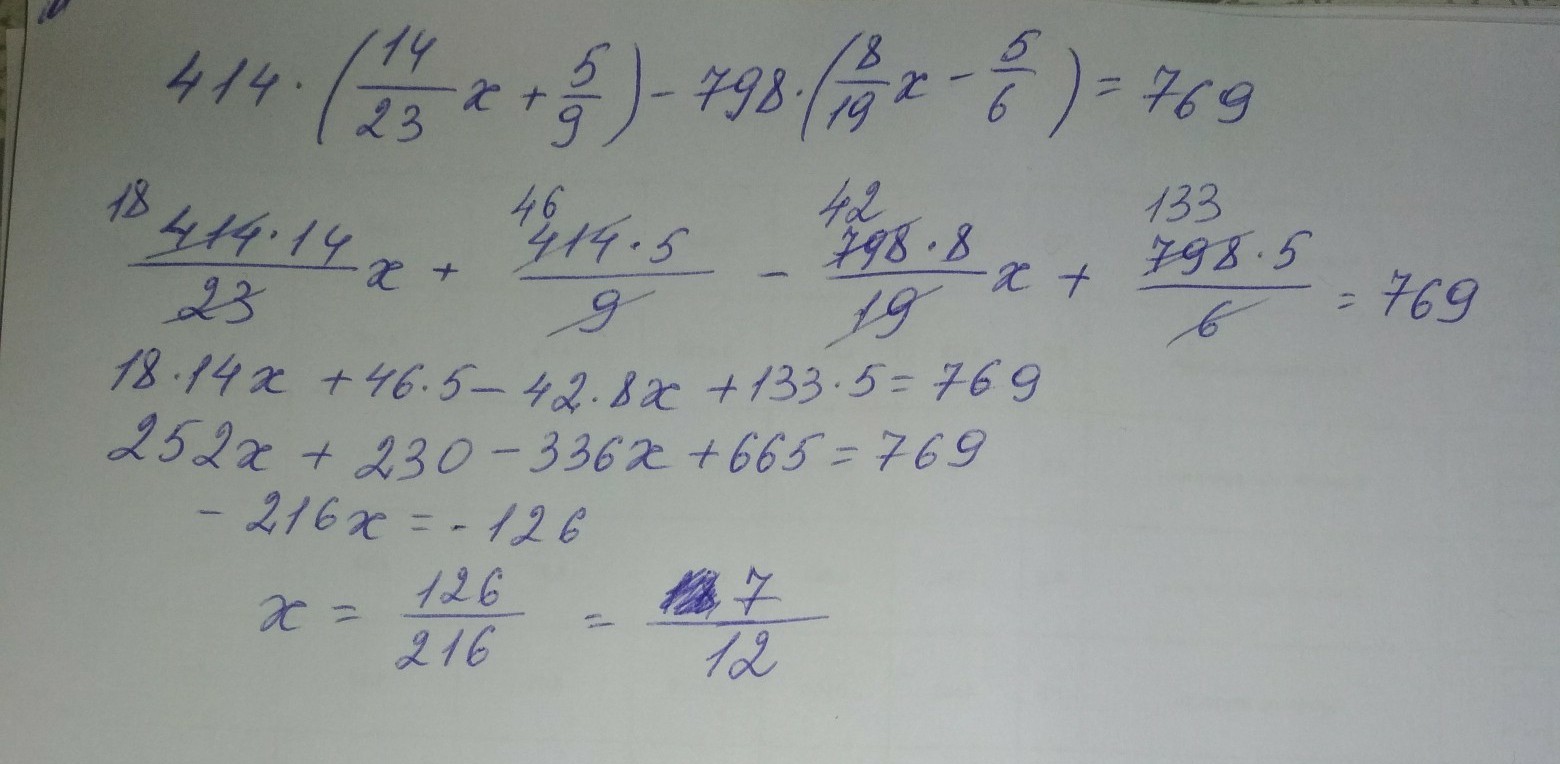 414 · (14/23 x + 5/9) - 798 · (8/19 x - 5/6) = 769
18 46 42 133
414 · 14/23 x + 414 · 5/9 - 798 · 8/19 x + 798 · 5/6 = 769
18 · 14x + 46 · 5 - 42 · 8x + 133 · 5 = 769
252x + 230 - 336x + 665 = 769
- 216x = - 126
x = 126/216 = 7/12